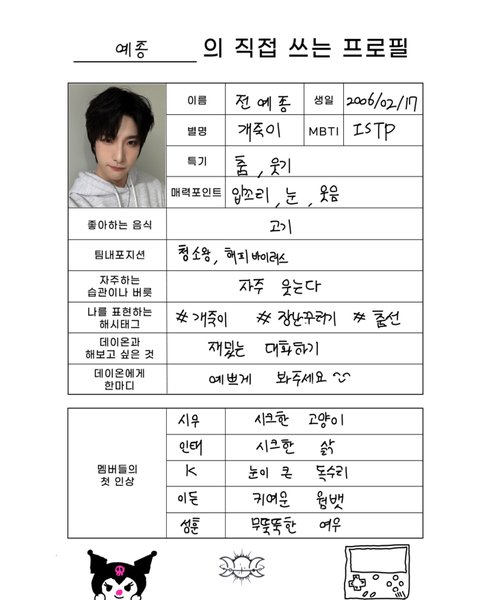 예종 의 직접 쓰는 프로필
이름 전예종 생일 2006/02/17
별명 개죽이 MBTI ISTP
특기 춤, 웃기
매력포인트 입꼬리, 눈, 웃음
좋아하는 음식 고기
팀내포지션 청소왕, 해피바이러스
자주하는
습관이나 버릇 자주 웃는다
나를 표현하는
해시태그 #개죽이 #장난꾸러기 #춤선
데이온과
해보고 싶은 것 재밌는 대화하기
데이온에게
한마디 예쁘게 봐주세요
멤버들의
첫 인상
시우 시크한 고양이
인태 시크한 삵
K 눈이 큰 독수리
이든 귀여운 웜뱃
성훈 무뚝뚝한 여우